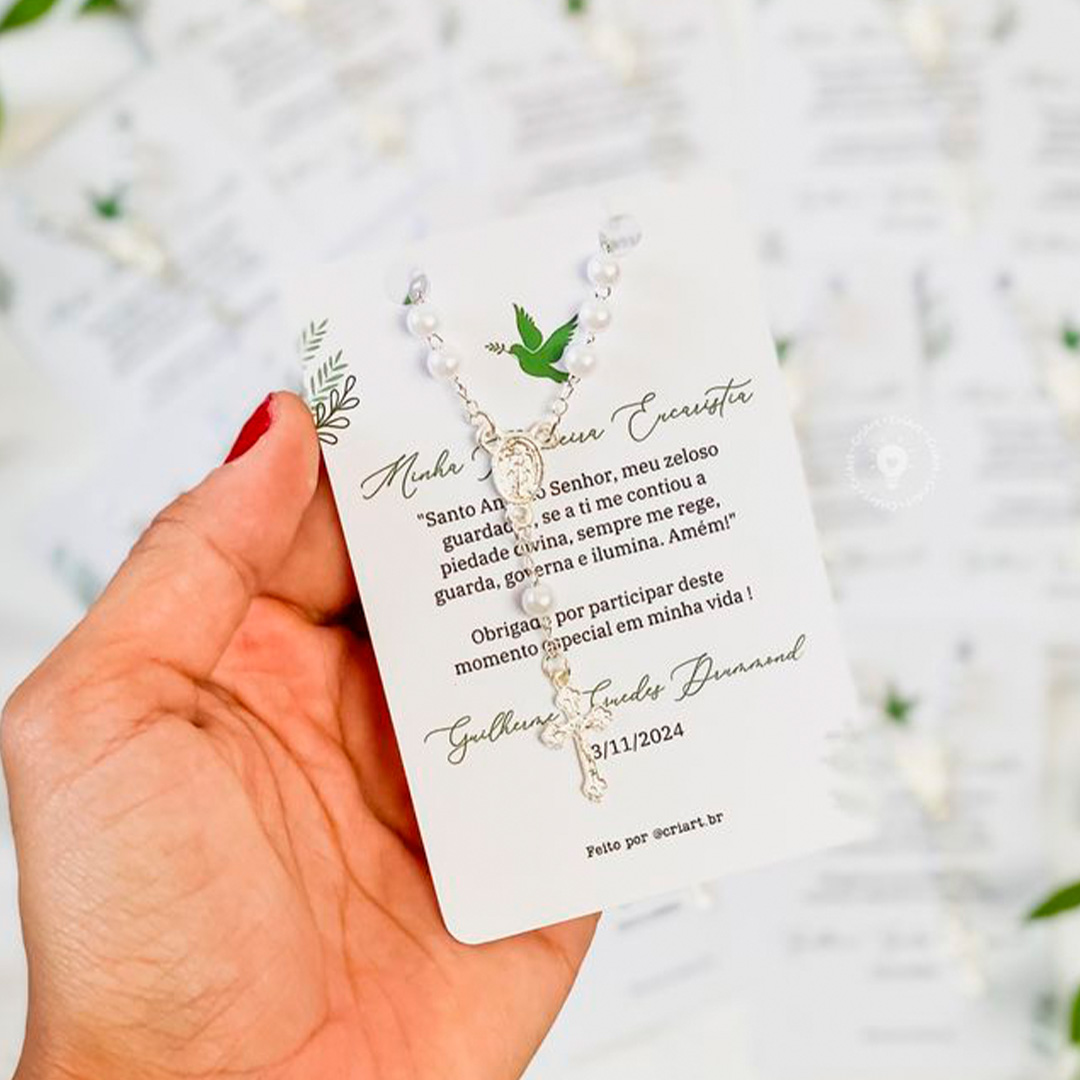 Minha eira Eucaristia
"Santo An o Senhor, meu zeloso
guardad , se a ti me contiou a
piedade d vina, sempre me rege,
guarda, governa e ilumina. Amém!"
Obrigad por participar deste
momento especial em minha vida !
Guilherme Guedes Drummond
3/11/2024
Feito por @criart.br